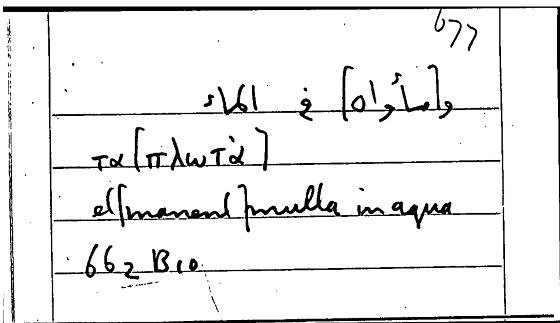 677
و[مأواه] في الماء
τα [πλωτὰ]
et [manent] multa in aqua
662 B10